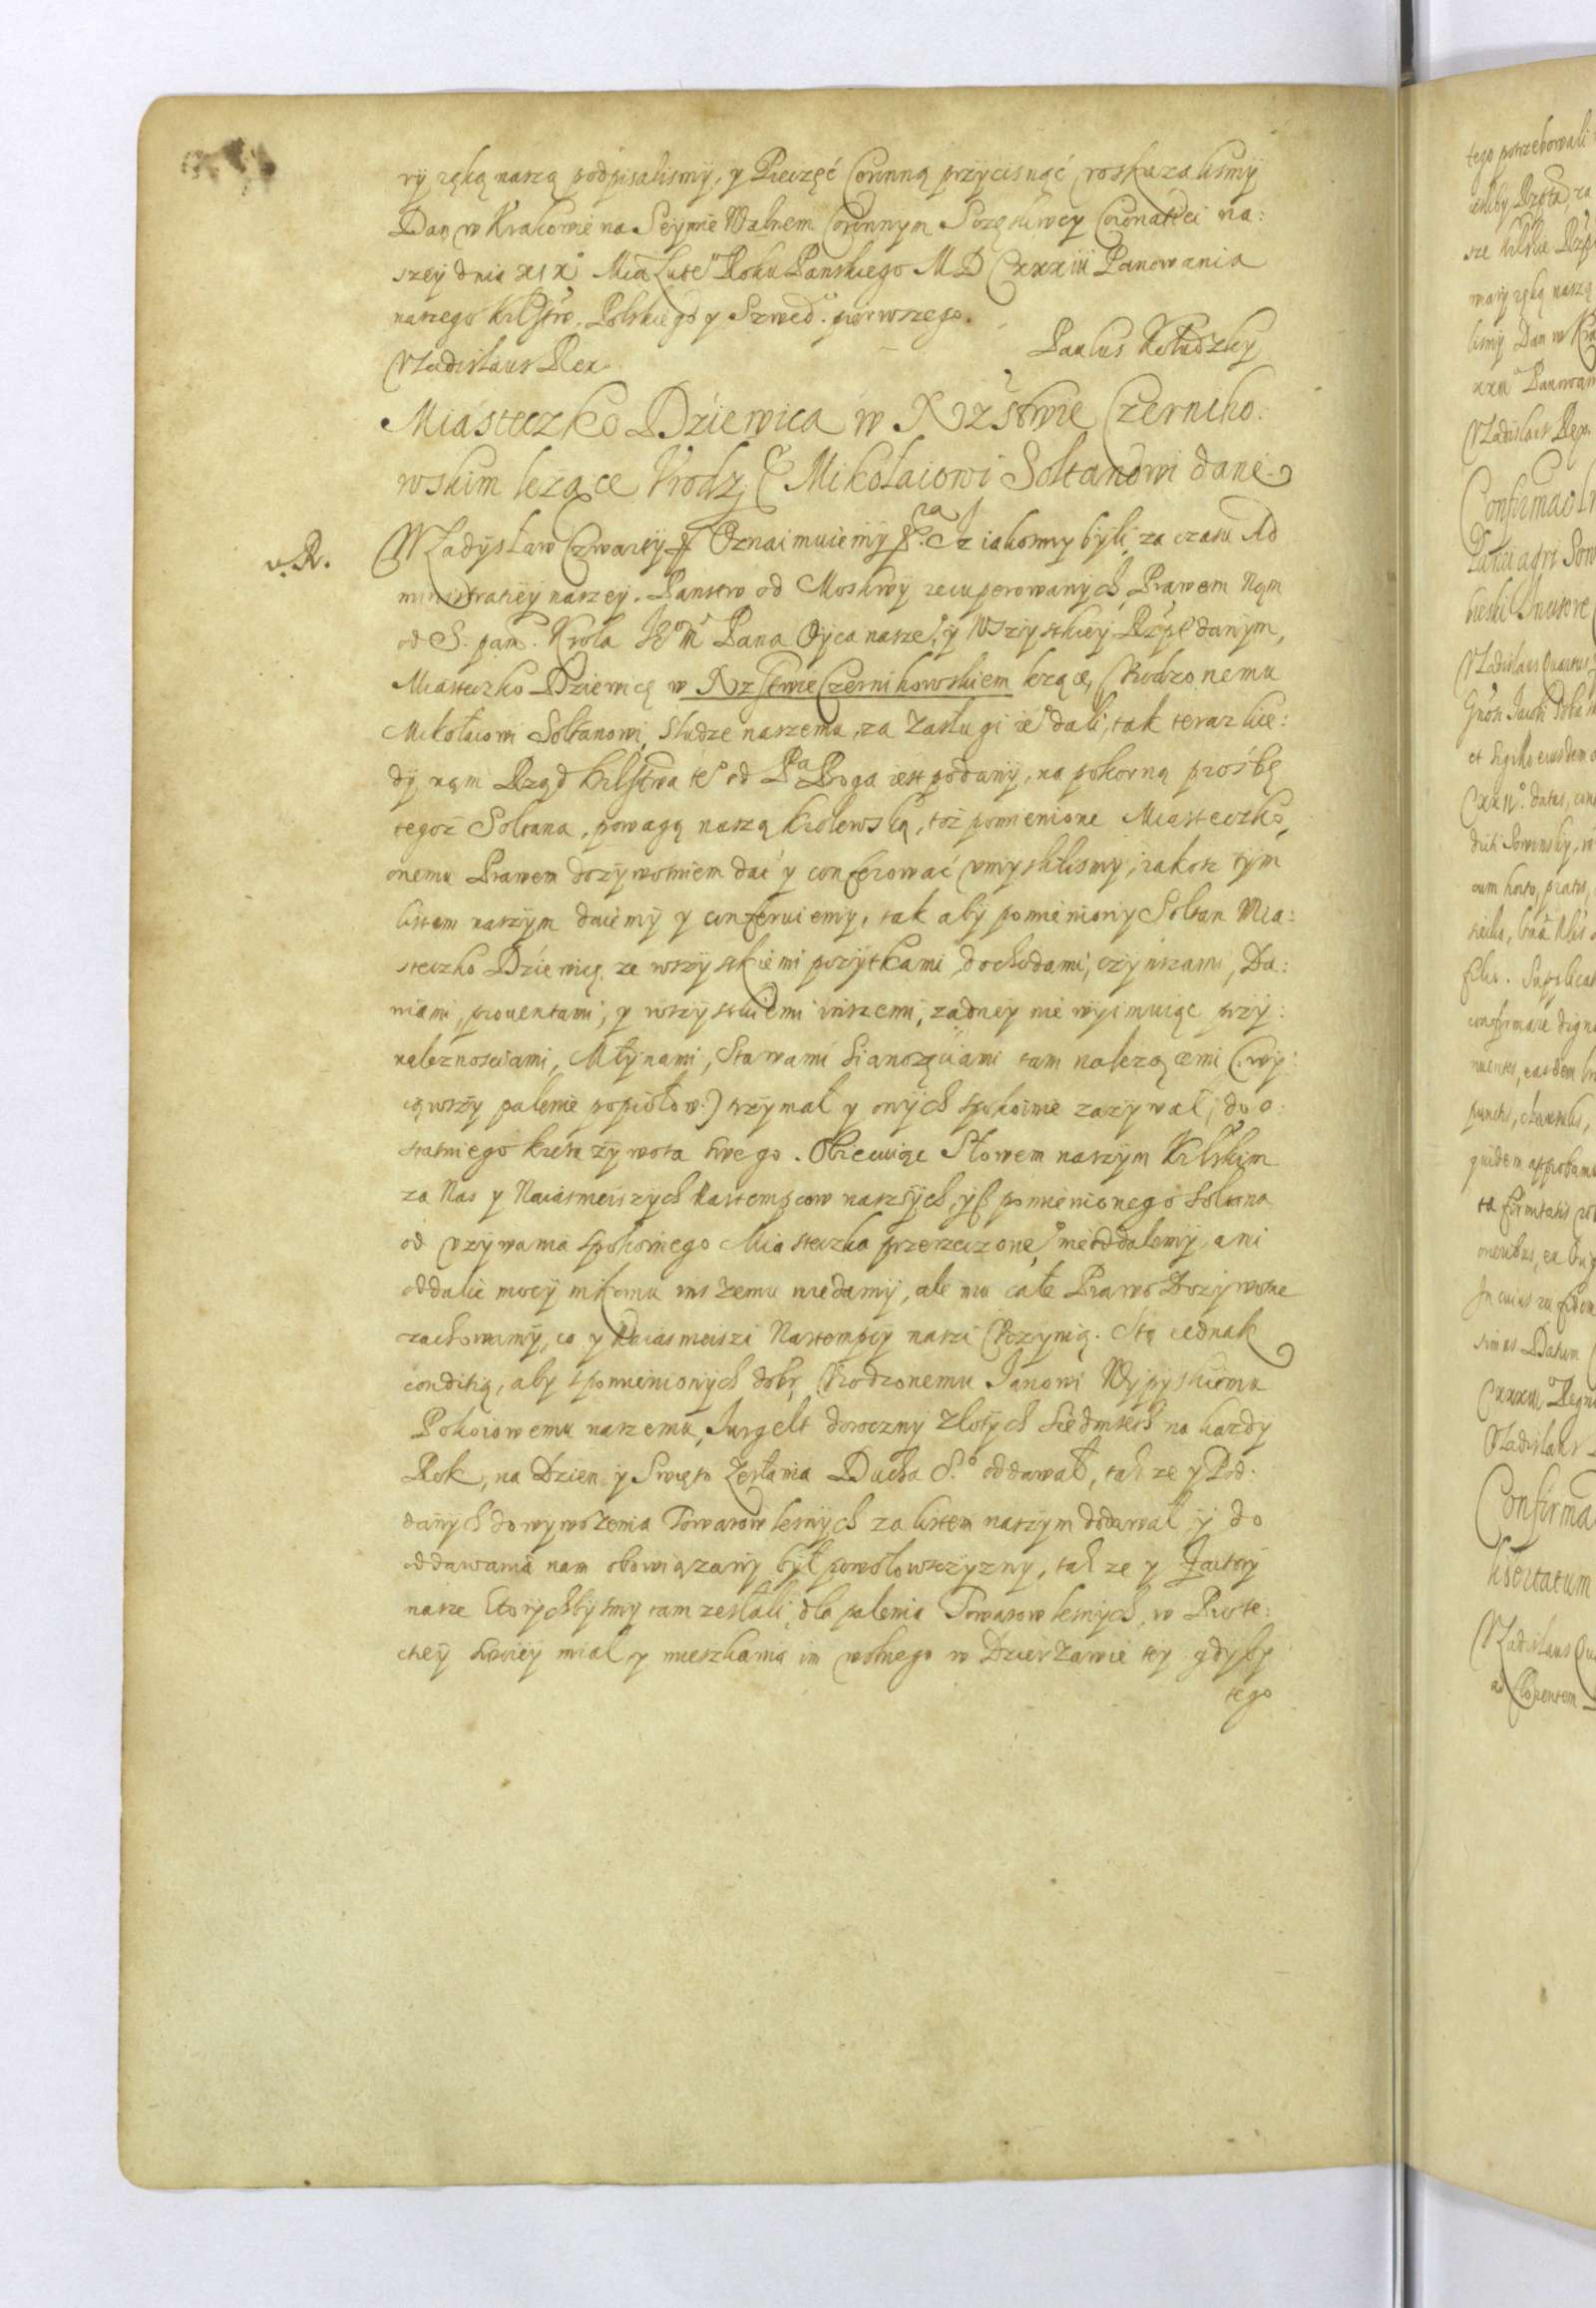 ry ręką naszą podpisalismy, y Pieczęć Coronną przycisnąć roskazalismy
Dan w Krakowie na Seymie Walnem Coronnym Sczęsliwey Coronatiei na:
szey dnia XIX Mca Lute° Roku Panskiego MDCXXXIII Panowania
naszego Krlstw. Polskiego y Szwed. pierwszego.
Vladislaus Rex
Paulus Kołudzky
Miasteczko Dziewica w Xzstwie Czerniho:
wskim leząće Vrodz. Mikołaiowi Sołtanowi dane
v. R.
Władysław Czwarty Oznaimuiemy Iz iakosmy byli za czasu Ad
ministratiey naszey. Panstw od Moskwy recuperowanych, Prawem Nąm
od S. pam. Krola Je°M Pana Oyca nasze° y Wszystkiey Rzpl danym,
Miasteczko Dziewicę w Xzstwie Czernihowskiem leząće, Vrodzonemu
Mikołaiowi Sołtanowi, Słudze naszemu, za Zasługi ie° dali, tak teraz kie:
dy nąm Rząd Krlstwa te° od Pa Boga iest podany, na pokorną prośbę
tegoz Sołtana, powagą naszą Krolewską, toż pomienione Miasteczko,
onemu Prawem dozywotniem dać y conferować vmyslilismy, iakosz tym
listem naszym daiemy y conferuiemy, tak aby pomieniony Soltan Mia:
steczko Dziewicę ze wszystkiemi pozytkami, dochodami, czynszami, Da:
niami, prouentami, y wszystkiemi inszemi, zadney nie wyimuiąc przy:
naleznosciami, Młynami, Stawami Sianozęciami tam nalezącemi (:wy:
iąwszy palenie popiołow:) trzymał y onych spokoinie zazywał, do o:
statniego kresu zywota swego. Obiecuiąc Słowem naszym Krlskim
za Nas y Naiasnieiszych Nastempcow naszych, yz pomienionego Sołtana
od vzywania spokoinego Miasteczka przerzeczone° nie oddalemy, ani
oddalic mocy nikomu inszemu niedamy, ale mu całe Prawo Dozywotne
zachowamy, co y Naiasnieiszi Nastempcy naszi vczynią. Stą iednak
conditią, aby spomienionych dobr Vrodzonemu Janowi Wypyskiemu
Pokoiowemu naszemu, Jurgelt doroczny złotych siedmset na kazdy
Rok, na Dzien y Swięto Zesłania Ducha S.° oddawał, takze y Pod:
danych do wywozenia Towarow lesnych za listem naszym dodawał y do
oddawania nam obowiązany był powołowszczyzny, takze y Factory
nasze ktorychbysmy tam zesłali, dla palenia Towarow lesnych, w Prote:
ctiey swoiey miał y mieszkania im wolnego w Dzierżawie tey gdyby
tego